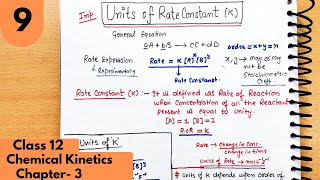 9
Imp.
Units of Rate Constant (K)
General Equation
aA + bB → cC + dD
order = x+y = n
Rate Expression
↳ Experimentally
Rate = K [A]ˣ [B]ʸ
↳ Rate Constant.
x, y → may or may
not be
Stoichiometric
Coeff.
Rate Constant (K) :- It is defined as Rate of Reaction
when Concentration of all the Reactant
present is equal to Unity.
[A] = 1 [B] = 1
R.O.R = K
Class 12
Chemical Kinetics
Chapter- 3
Units of 'K'
Rate = Change in Conc.
Change in time
Units of Rate = mol L⁻¹ s⁻¹
# Units of K depends upon orders of